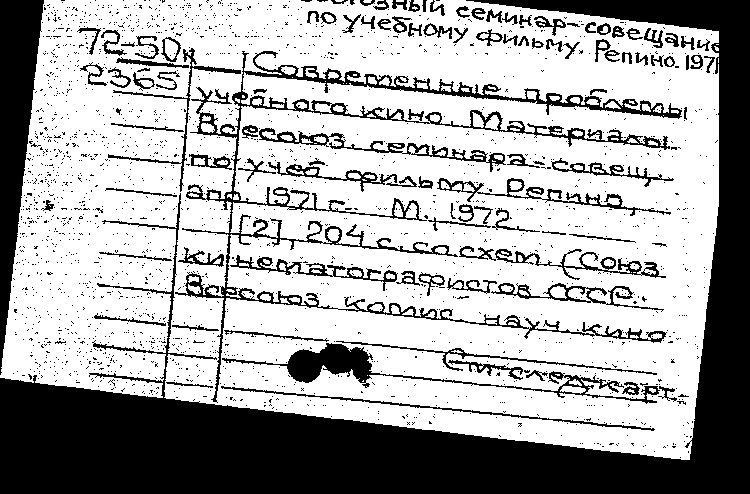 семинар-совещание
по учебному фильму. Репино. 1971
72-50к
2365
Современные проблемы
учебного кино. Материалы
Всесоюз. семинара-совещ.
по учеб фильму. Репино,
апр. 1971 г. М., 1972.
[2], 204 с. со схем. (Союз
кинематографистов СССР.
Всесоюз. комис. науч. кино
См. след. карт.